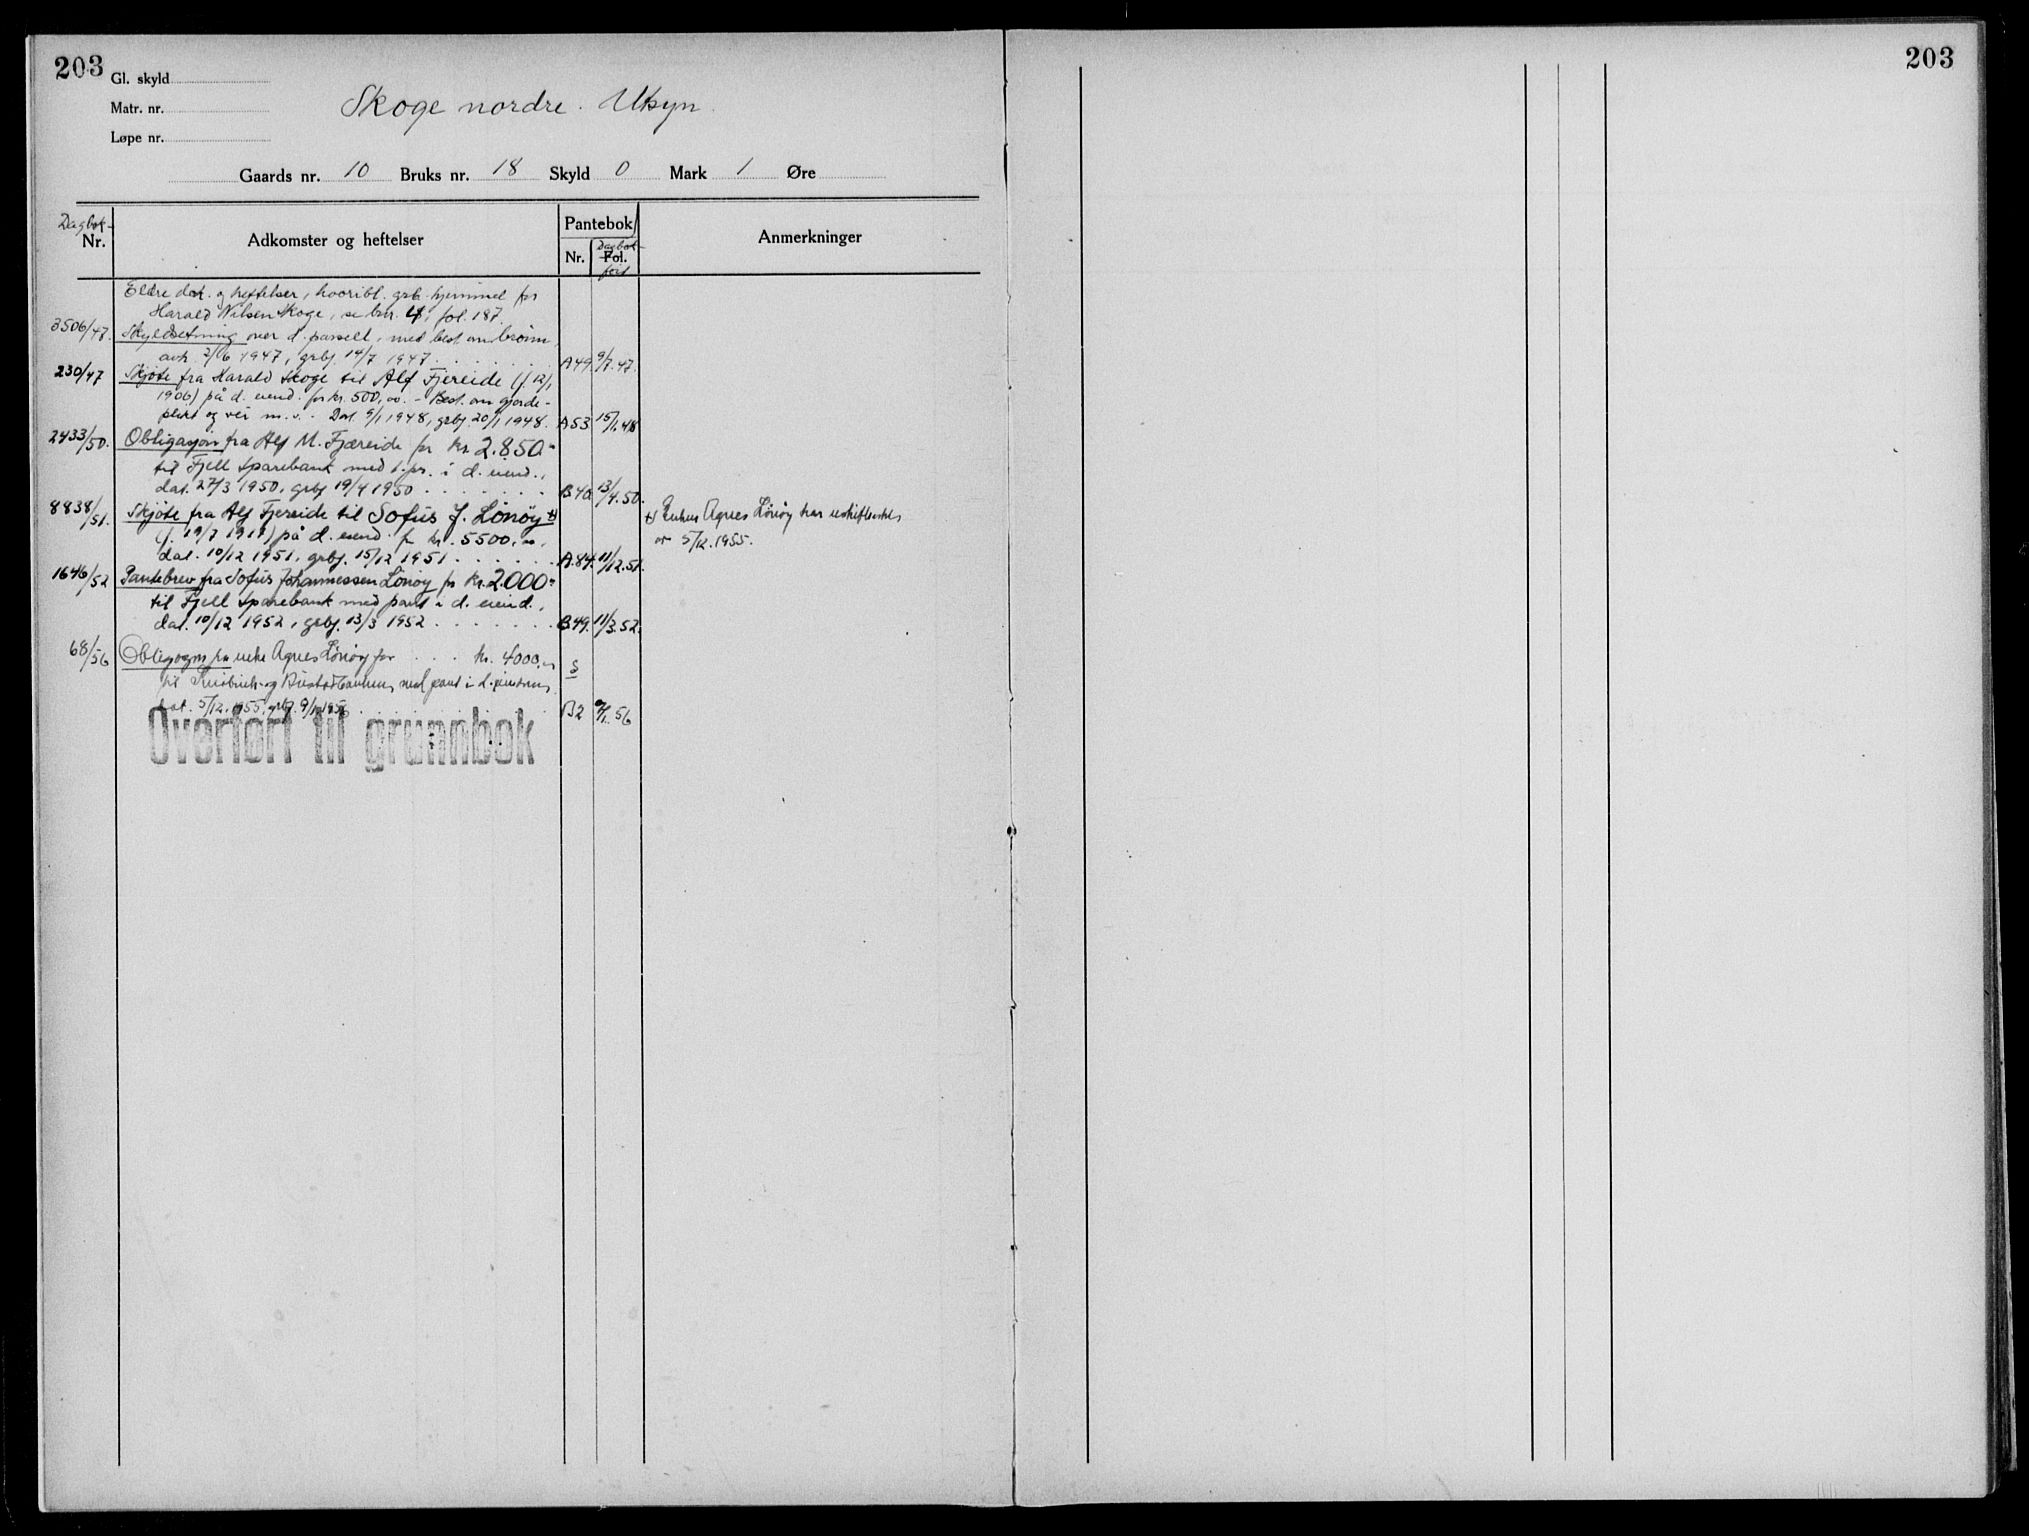 203
203
Gl. skyld
Matr. nr.
Løpe nr.
Skoge nordre. Utsyn.
Gaards nr. 10 Bruks nr. 18 Skyld 0 Mark 1 Øre
Dagbok-
Nr.
Adkomster og heftelser
Pantebok/
Nr.
Dagbok-
Fol.
Anmerkninger
Eldre dok. og heftelser, hvoribl. grb. hjemmel for
Harald Nilsen Skoge, se bnr. 4, fol. 187.
3506/47. Skyldsetning over d. parsell, med best. om brønn,
avh. 2/6 1947, grbj. 14/7 1947 . . . . A49. 9/7.47.
230/47 Skjøte fra Harald Skoge til Alf Fjereide (f. 12/1
1906) på d. eiend. for kr. 500,00. - Best. om gjerde-
plikt og vei m.v. - Dat. 9/1 1948, grbj. 20/1 1948. A53 15/1.48
2433/50. Obligasjon fra Alf M. Fjæreide for kr. 2.850.-
til Fjell Sparebank med 1. pr. i d. eiend.,
dat. 27/3 1950, grbj 19/4 1950 . . . . . . B.40. 13/4.50.
8838/51. Skjøte fra Alf Fjereide til Sofus J. Lönöy x)
(f. 19/7 1911) på d. eiend. for kr. 5500,00,
dat. 10/12 1951, grbj. 15/12 1951 . . . . . . A.84. 11/12.51.
x) Enken Agnes Lönöy har uskifteattest
av 5/12.1955.
1646/52 Pantebrev fra Sofus Johannessen Lönöy for kr. 2.000.-
til Fjell Sparebank med pant i d. eiend.,
dat. 10/12 1952, grbj. 13/3 1952 . . . . . . B.49. 11/3.52.
68/56 Obligasjon fra enke Agnes Lönöy for . . . kr. 4000,-
S
til Småbruk- og Bustadbanken, med pant i d. eiendom,
dat. 5/12.1955, grbj. 9/1.1956 . . . . . . B2 9/1.56
Overført til grunnbok